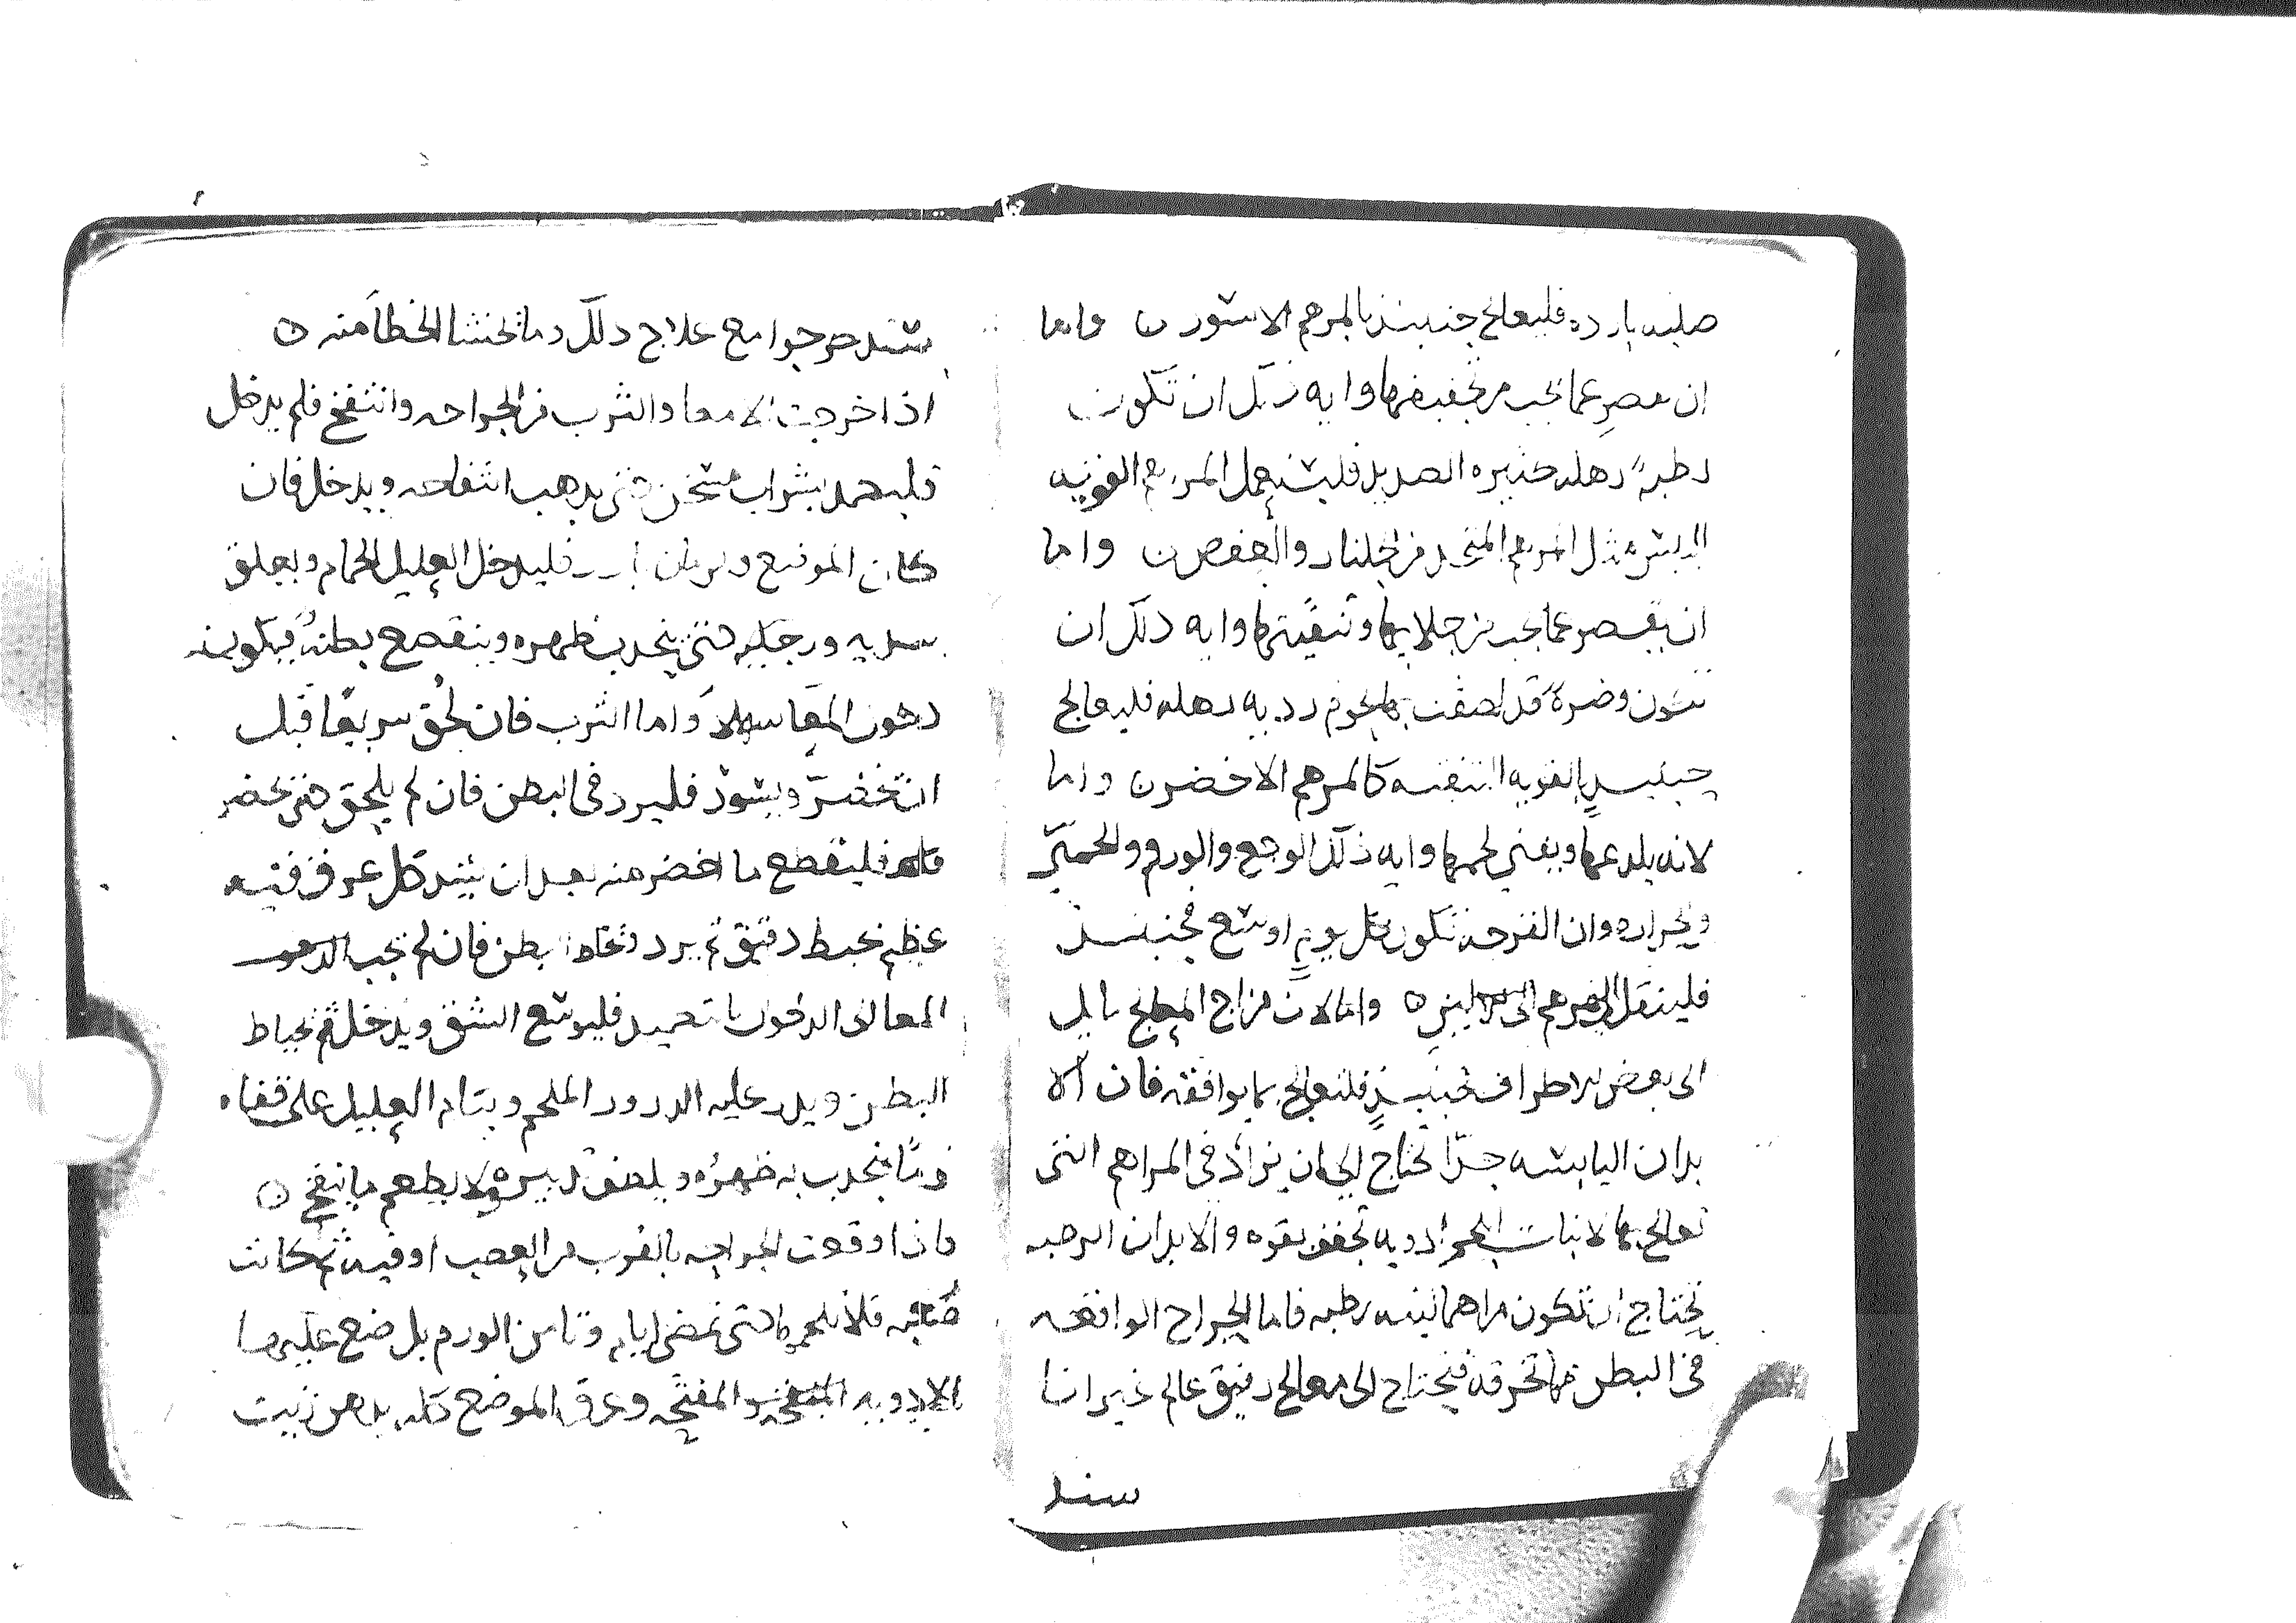 صلبه بارده فليعالج حينئذ بالمرهم الاسود ن واما
ان يقصر عما يجب من تجفيفها وايه ذلك ان تكون
رطبة رهله كثيره الصديد فليستعمل المراهم القويه
اليبس مثل المرهم المتخذ من الجلنار والعفص ن واما
ان يقصر عما يجب من جلايها وتنقيتها وايه ذلك ان
تكون وضرة قد لصقت بها لحوم رديه رهله فليعالج
حينئذ بالقويه التنقيه كالمرهم الاخضر ن واما
لانه يلدعها ويفني لحمها وايه ذلك الوجع والورم والحمى
والحراره وان القرحه تكون كل يوم اوسع فحينئذ
فلينتقل المرهم الى واما لان مزاج المعالج مايل
الى بعض الاطراف فحينئذ فلتعالج بما يوافقه فان الا
بدان اليابسه جدا تحتاج الى ان يزاد في المراهم التى
تعالج بها لانبات اللحم ادويه تجفف بقوه والابدان الرطبه
تحتاج ان تكون مراهما لينه رطبه فاما الجراح الواقعه
فى البطن فيحتاج الى معالج رفيق عالم غير انا
سند
سند مرجوا مع علاج ذلك وما نخشا الخطا منه ن
اذا خرجت الامعا والثرب من الجراحه وانتفخ فلم يدخل
فليكمد بشراب مسخن حتى يذهب انتفاخه ويدخل فان
كان الموضع فليدخل العليل الحمام ويعلق
بيديه ورجليه حتى ينحدب ظهره وينقصع بطنه فيكون
دخول المعا سهلا واما الثرب فان لحق سريعا قبل
ان يخضر ويسود فليرد فى البطن فان لم يلحق حتى يخضر
فليقطع ما اخضر منه بعد ان يشد كل عرق فيه
عظيم بخيط دقيق ثم يرد وتخاط البطن فان لم يجب
المعا الى الدخول بالتكميد فليوسع الشق ويدخل ثم يخاط
البطن ويذر عليه الذرور الملحم وينام العليل على قفاه
نوما ينحدب به ظهره ويلطف تدبيره ولا يطعم ما ينفخ ن
فاذا وقعت الجراحه بالقرب من العصب او فيه ثم كانت
صعبه فلا تلحمها حتى تمضى ايام وتامن الورم بل ضع عليها
الادويه المفتحه وعرق الموضع كله بدهن زيت